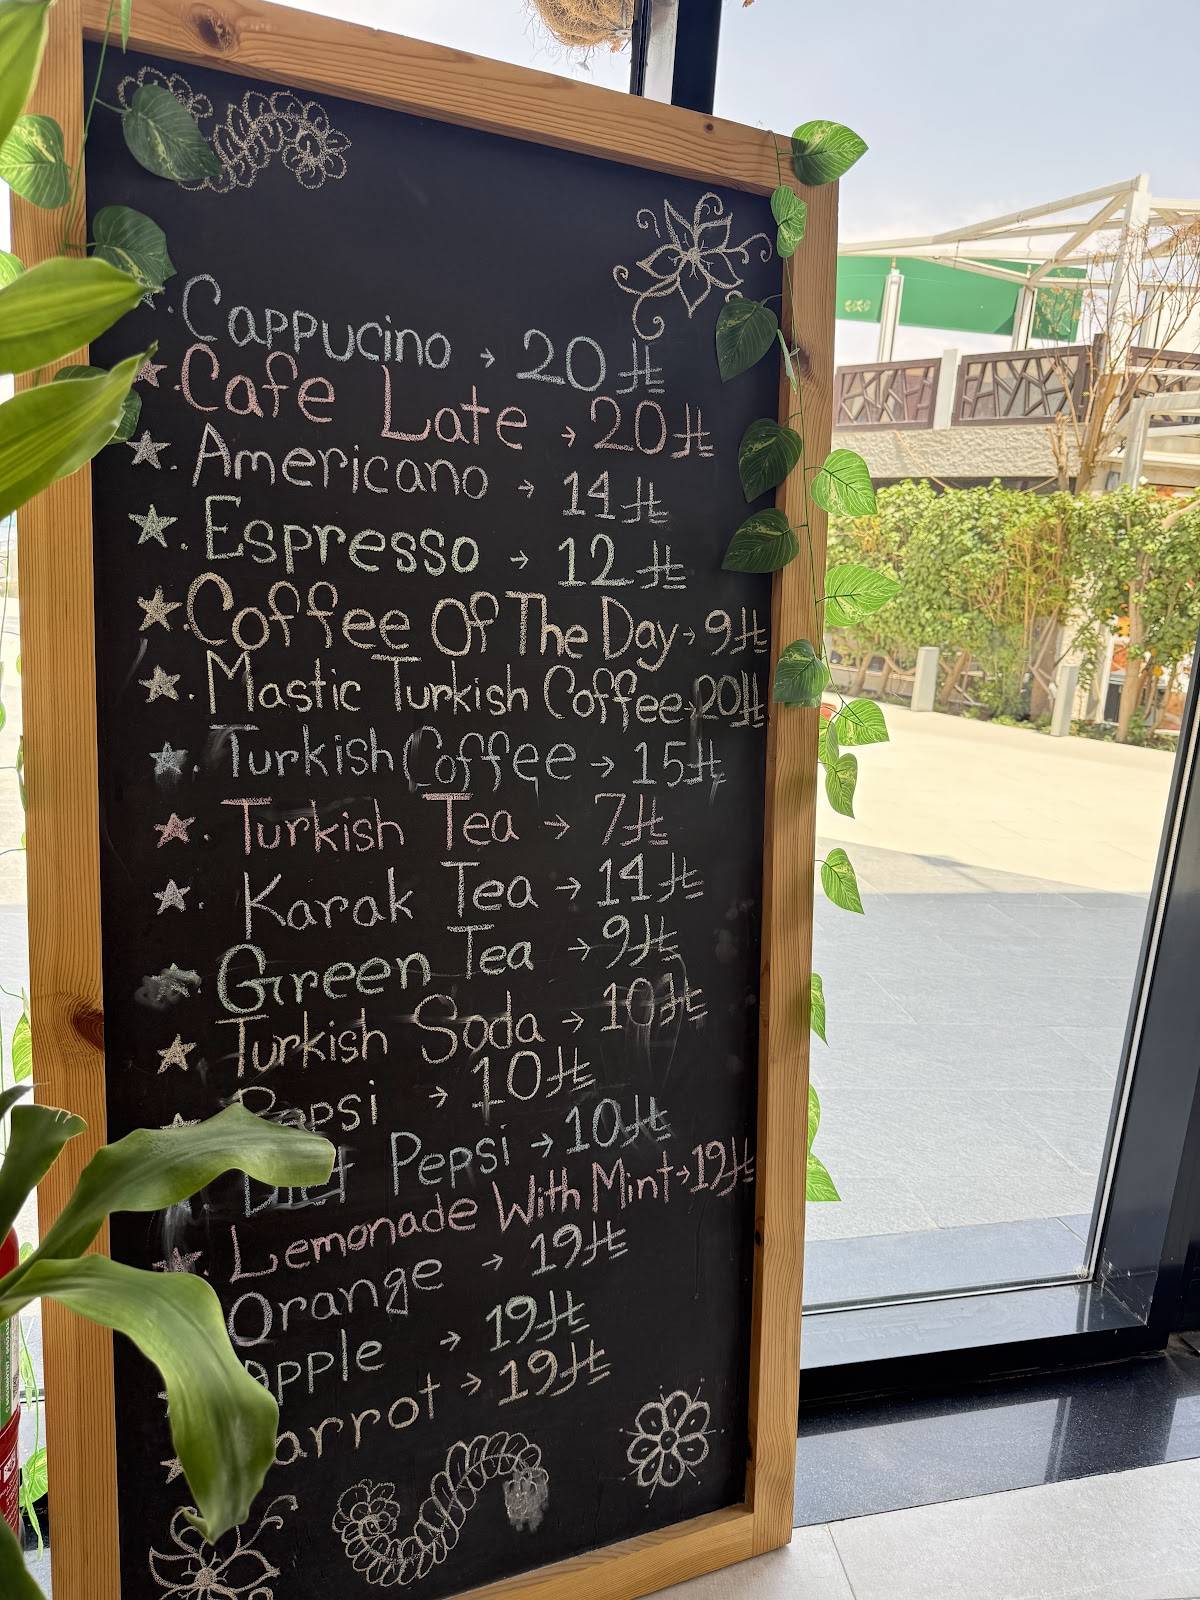 Cappucino → 20 ⃁
Cafe Late → 20 ⃁
Americano → 14 ⃁
Espresso → 12 ⃁
Coffee Of The Day → 9 ⃁
Mastic Turkish Coffee → 20 ⃁
Turkish Coffee → 15 ⃁
Turkish Tea → 7 ⃁
Karak Tea → 14 ⃁
Green Tea → 9 ⃁
Turkish Soda → 10 ⃁
Pepsi → 10 ⃁
Diet Pepsi → 10 ⃁
Lemonade With Mint → 19 ⃁
Orange → 19 ⃁
Apple → 19 ⃁
arrot → 19 ⃁